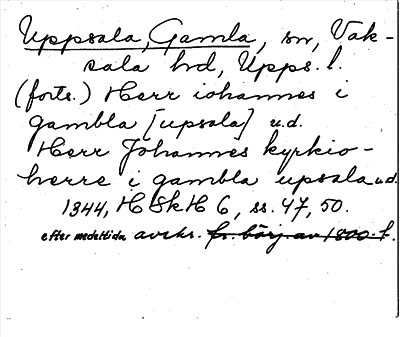 Uppsala, Gamla, sn, Vak-
sala hd, Upps. l.
(forts.) Herr iohannes i
gambla [upsala] u.d.
Herr Johannes kyrkio-
herre i gambla upsala u.d.
1344, HSkH 6, ss. 47, 50.
efter medeltida avskr. fr. börj av 1800-t.